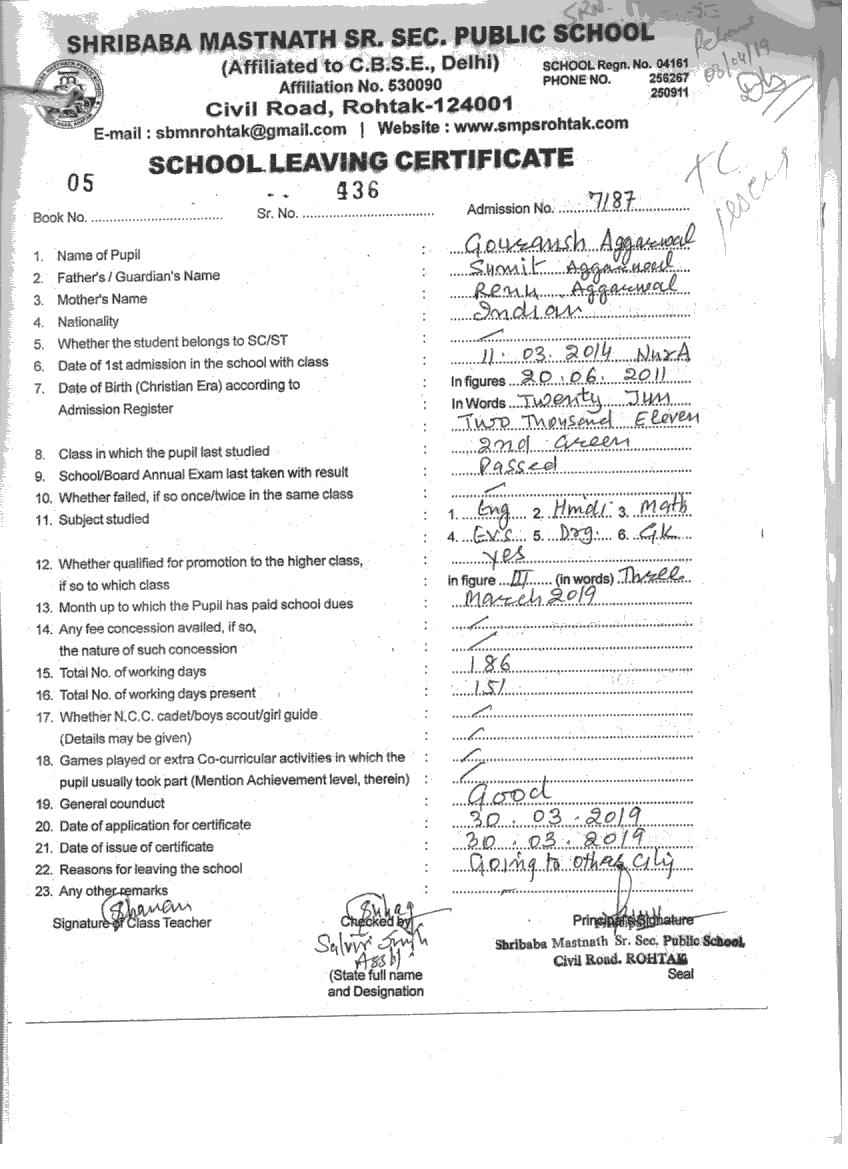 SHRIBABA MASTNATH SR. SEC. PUBLIC SCHOOL
(Affiliated to C.B.S.E., Delhi)
Affiliation No. 530090
SCHOOL Regn. No. 04161
PHONE NO. 256267
250911
Civil Road, Rohtak-124001
E-mail : sbmnrohtak@gmail.com | Website : www.smpsrohtak.com
03/04/19
TC
SCHOOL LEAVING CERTIFICATE
Book No. 05 Sr. No. 436 Admission No. 7187
1. Name of Pupil : Gouransh Aggarwal
2. Father's / Guardian's Name : Sumit Aggarwal
3. Mother's Name : Renu Aggarwal
4. Nationality : Indian
5. Whether the student belongs to SC/ST : /
6. Date of 1st admission in the school with class : 11.03.2014 NurA
7. Date of Birth (Christian Era) according to : In figures 20.06.2011
Admission Register : In Words Twenty Jun
Two Thousand Eleven
8. Class in which the pupil last studied : 2nd Green
9. School/Board Annual Exam last taken with result : Passed
10. Whether failed, if so once/twice in the same class : /
11. Subject studied : 1. Eng 2. Hindi 3. Math
4. Evs 5. Drg. 6. G.K
12. Whether qualified for promotion to the higher class, : Yes
if so to which class : in figure III (in words) Three
13. Month up to which the Pupil has paid school dues : March 2019
14. Any fee concession availed, if so, : /
the nature of such concession : /
15. Total No. of working days : 186
16. Total No. of working days present : 151
17. Whether N.C.C. cadet/boys scout/girl guide : /
(Details may be given) : /
18. Games played or extra Co-curricular activities in which the : /
pupil usually took part (Mention Achievement level, therein) : /
19. General counduct : Good
20. Date of application for certificate : 30.03.2019
21. Date of issue of certificate : 30.03.2019
22. Reasons for leaving the school : Going to other City
23. Any other remarks : -
Signature of Class Teacher Checked by Principal's Signature
Shribaba Mastnath Sr. Sec. Public School,
Civil Road, ROHTAK
(State full name Seal
and Designation